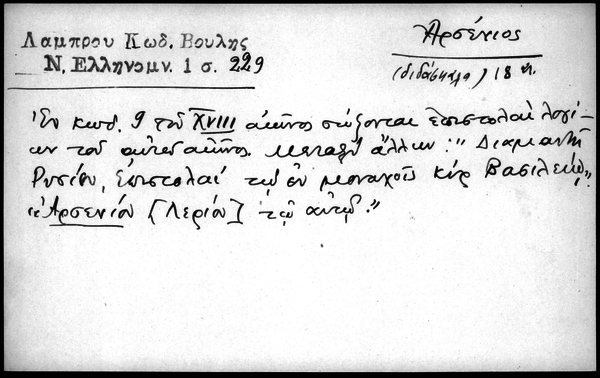 Λαμπρου Κωδ. Βουλης
Ν. Ελληνομν. 1 σ. 229
Ἀρσένιος
(διδάσκαλος) 18 αι.
Ἐν κωδ. 9 τοῦ XVIII αἰῶνος σώζονται ἐπιστολαὶ λογί-
ων τοῦ αὐτοῦ αἰῶνος. Μεταξὺ ἄλλων: "Διαμαντῆ
Ρυσίου, ἐπιστολαί τῷ ἐν μοναχοῖς κὺρ Βασιλείῳ".
"Ἀρσενίου [Λερίου] τῷ αὐτῷ."